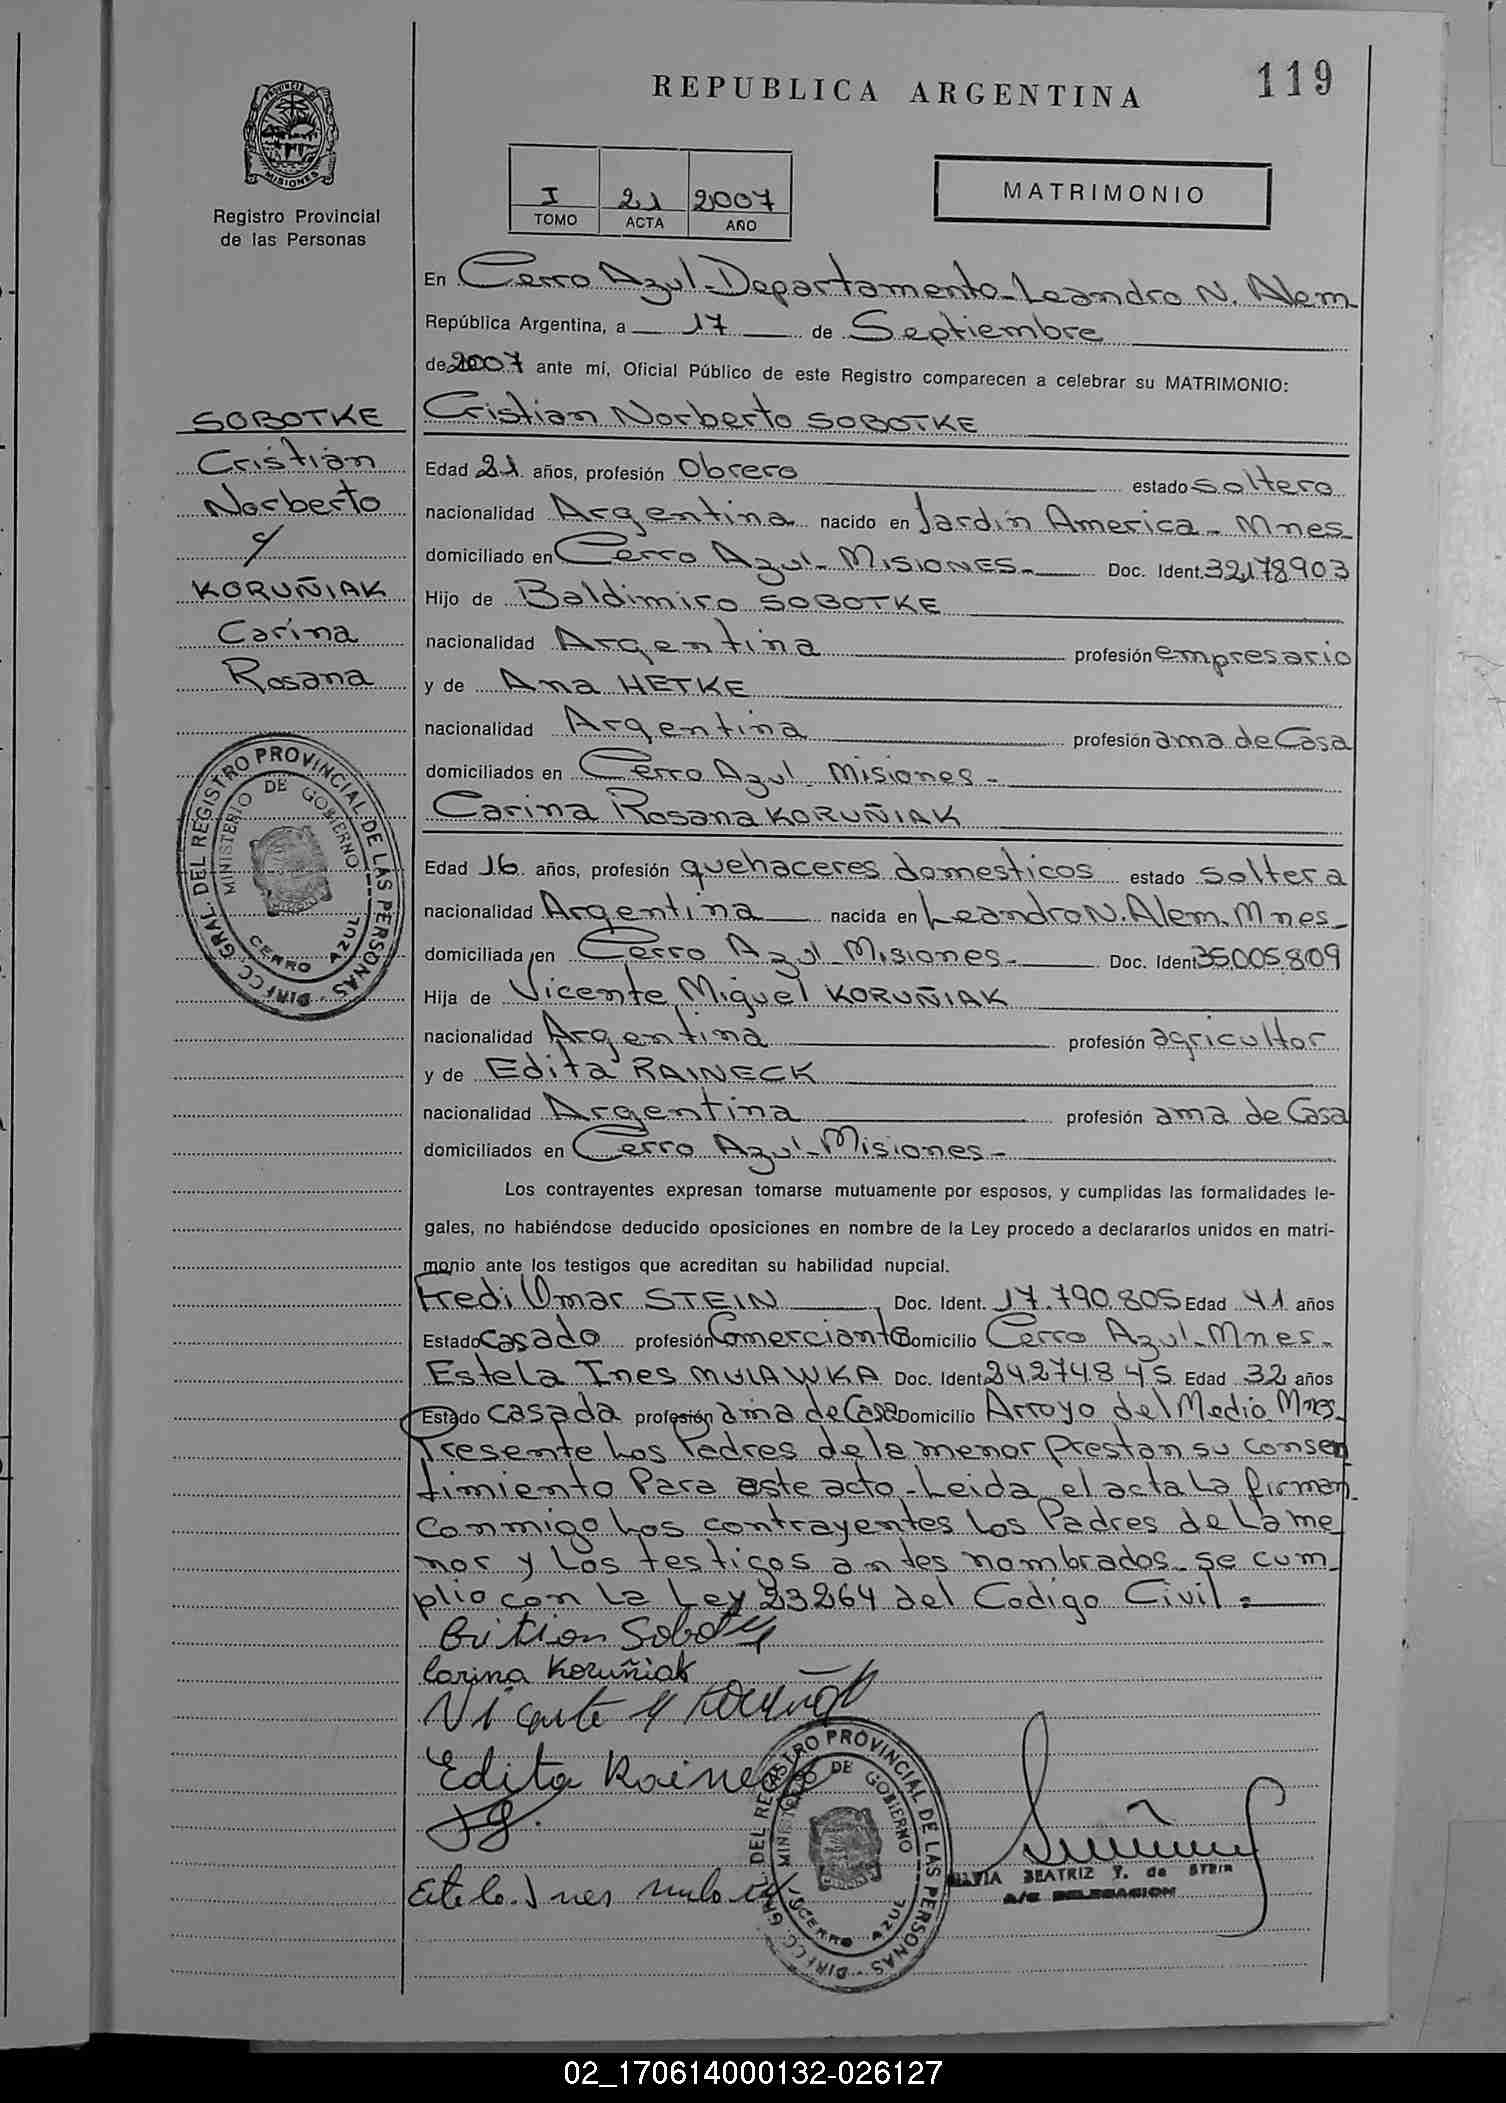 REPUBLICA ARGENTINA
119
PROVINCIA DE
MISIONES
Registro Provincial
de las Personas
I 21 2007
TOMO ACTA AÑO
MATRIMONIO
En Cerro Azul - Departamento - Leandro N. Alem
República Argentina, a 17 de Septiembre
de 2007 ante mí, Oficial Público de este Registro comparecen a celebrar su MATRIMONIO:
SOBOTKE
Cristian
Norberto
y
KORUÑIAK
Carina
Rosana
Cristian Norberto SOBOTKE
Edad 21 años, profesión Obrero estado soltero
nacionalidad Argentina nacido en Jardín America - Mnes
domiciliado en Cerro Azul - Misiones - Doc. Ident. 32178903
Hijo de Baldimiro SOBOTKE
nacionalidad Argentina profesión empresario
y de Ana HETKE
nacionalidad Argentina profesión ama de Casa
domiciliados en Cerro Azul Misiones -
Carina Rosana KORUÑIAK
Edad 16 años, profesión quehaceres domesticos estado soltera
nacionalidad Argentina nacida en Leandro N. Alem. Mnes
domiciliada en Cerro Azul - Misiones - Doc. Ident 35.005.809
Hija de Vicente Miguel KORUÑIAK
nacionalidad Argentina profesión agricultor
y de Edita RAINECK
nacionalidad Argentina profesión ama de Casa
domiciliados en Cerro Azul - Misiones -
DIRECC. GRAL. DEL REGISTRO PROVINCIAL DE LAS PERSONAS
MINISTERIO DE GOBIERNO
CERRO AZUL
Los contrayentes expresan tomarse mutuamente por esposos, y cumplidas las formalidades le-
gales, no habiéndose deducido oposiciones en nombre de la Ley procedo a declararlos unidos en matri-
monio ante los testigos que acreditan su habilidad nupcial.
Fredi Omar STEIN, Doc. Ident. 17.790.805 Edad 41 años
Estado casado profesión Comerciante Domicilio Cerro Azul - Mnes -
Estela Ines MULAWKA Doc. Ident 24.274.845 Edad 32 años
Estado casada profesión ama de Casa Domicilio Arroyo del Medio Mnes -
Presente Los Padres de la menor prestan su consen
timiento Para este acto - Leida el acta La firman
Conmigo Los contrayentes los Padres de La me
nor y Los testigos antes nombrados - se cum
plio con la Ley 23264 del Codigo Civil. -
Cristian Sobotke
Carina Koruñiak
Vicente M Koruñak
Edita Raineck
Estela Ines Mulawka
DIRECC. GRAL. DEL REGISTRO PROVINCIAL DE LAS PERSONAS
MINISTERIO DE GOBIERNO
CERRO AZUL
SILVIA BEATRIZ Y. de STEIN
A/C DELEGACION
02_170614000132-026127